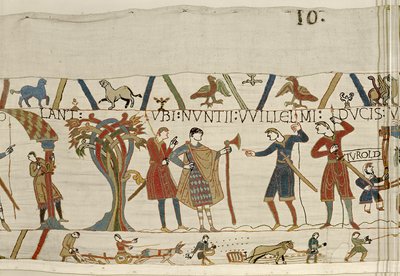 10:
LANT: VBI: NVNTII: VVILLELMI: DVCIS
TVROLD